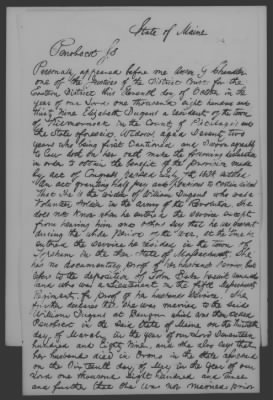 State of Maine
Penobscot Ss
Personaly appeared before me
one of the Justices of the District Court for the
Eastern District this Seventh day of October in the
year of our Lord one thousand eight hundred and
thirty Nine Elizabeth Dugens a resident of the town
of in the County of Piscataquis and
the State aforesaid, Widow aged Seventy two
years who being first Cautioned and Sworn agreeably
to Law doth on her oath make the following declaration
in order to obtain the benefit of the provision made
by act of Congress, passed July 7th 1838 entitled
an act granting half pay and pensions to certain widows
That she is the widow of William Dugens who was a
Volunteer Soldier in the army of the Revolution She
does not know when he entered the service except
from hearing him and others say that he was present
during the whole of the War, at the time he
entered the service he resided in the town of
Topsham in the then State of Massachusetts. She
has no documentary proof of her husbands service but
refers to the deposition of John
and who was a Lieutenant in the fifth
Regiment, for proof of her husbands service. She
further declares that She was married to the said
William Dugens at Bangor which was then called
Penobscot in the said State of Maine on the thirtieth
day of March in the year of our Lord Seventeen
hundred and Eighty Nine, and She also says that
her husband died in Orono in the State aforesaid
on the Sixteenth day of May in the year of our
Lord one thousand Eight hundred and three
and further that She was not married prior